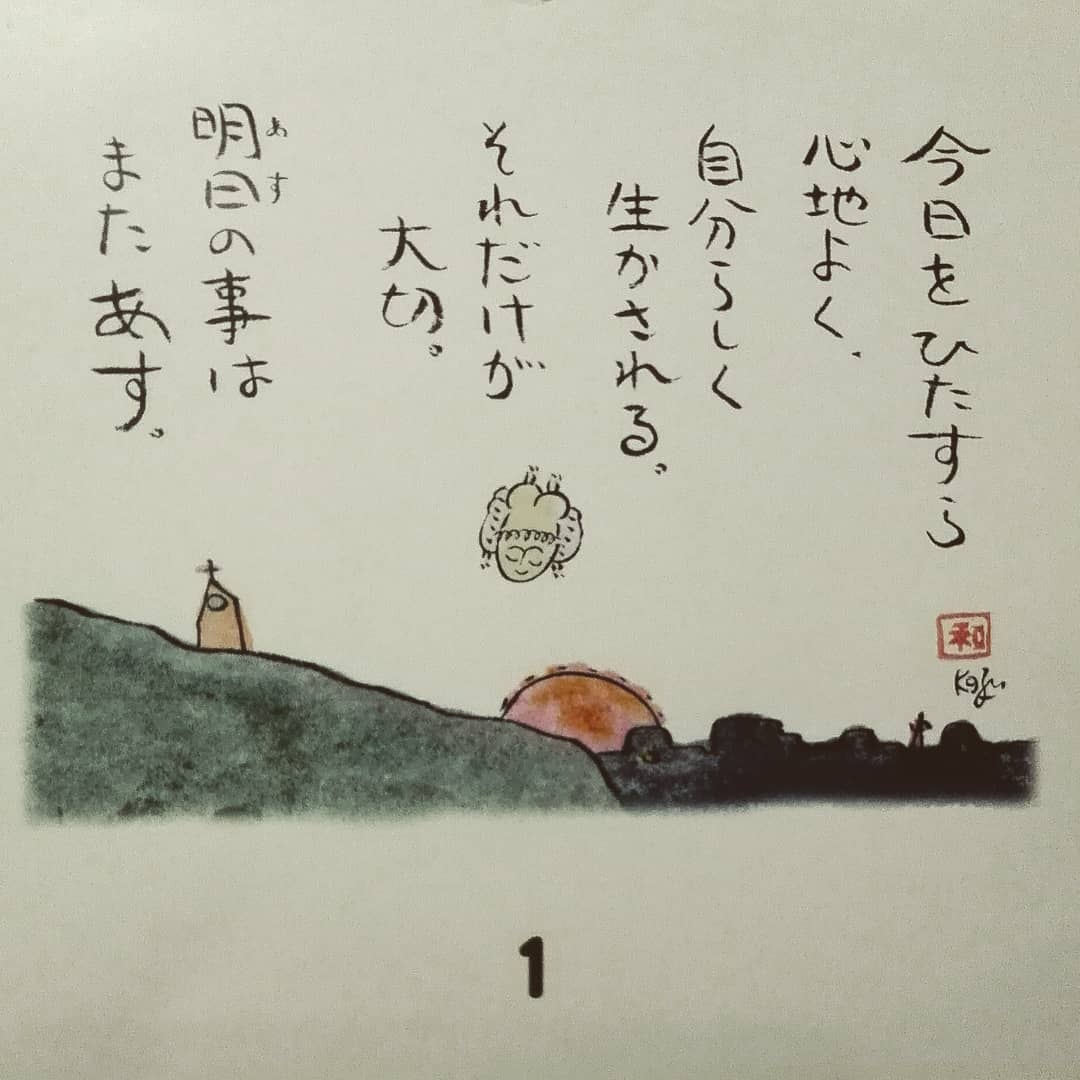 今日をひたすら
心地よく、
自分らしく
生かされる。
それだけが
大切。
明日の事は
あす
またあす。
和
1